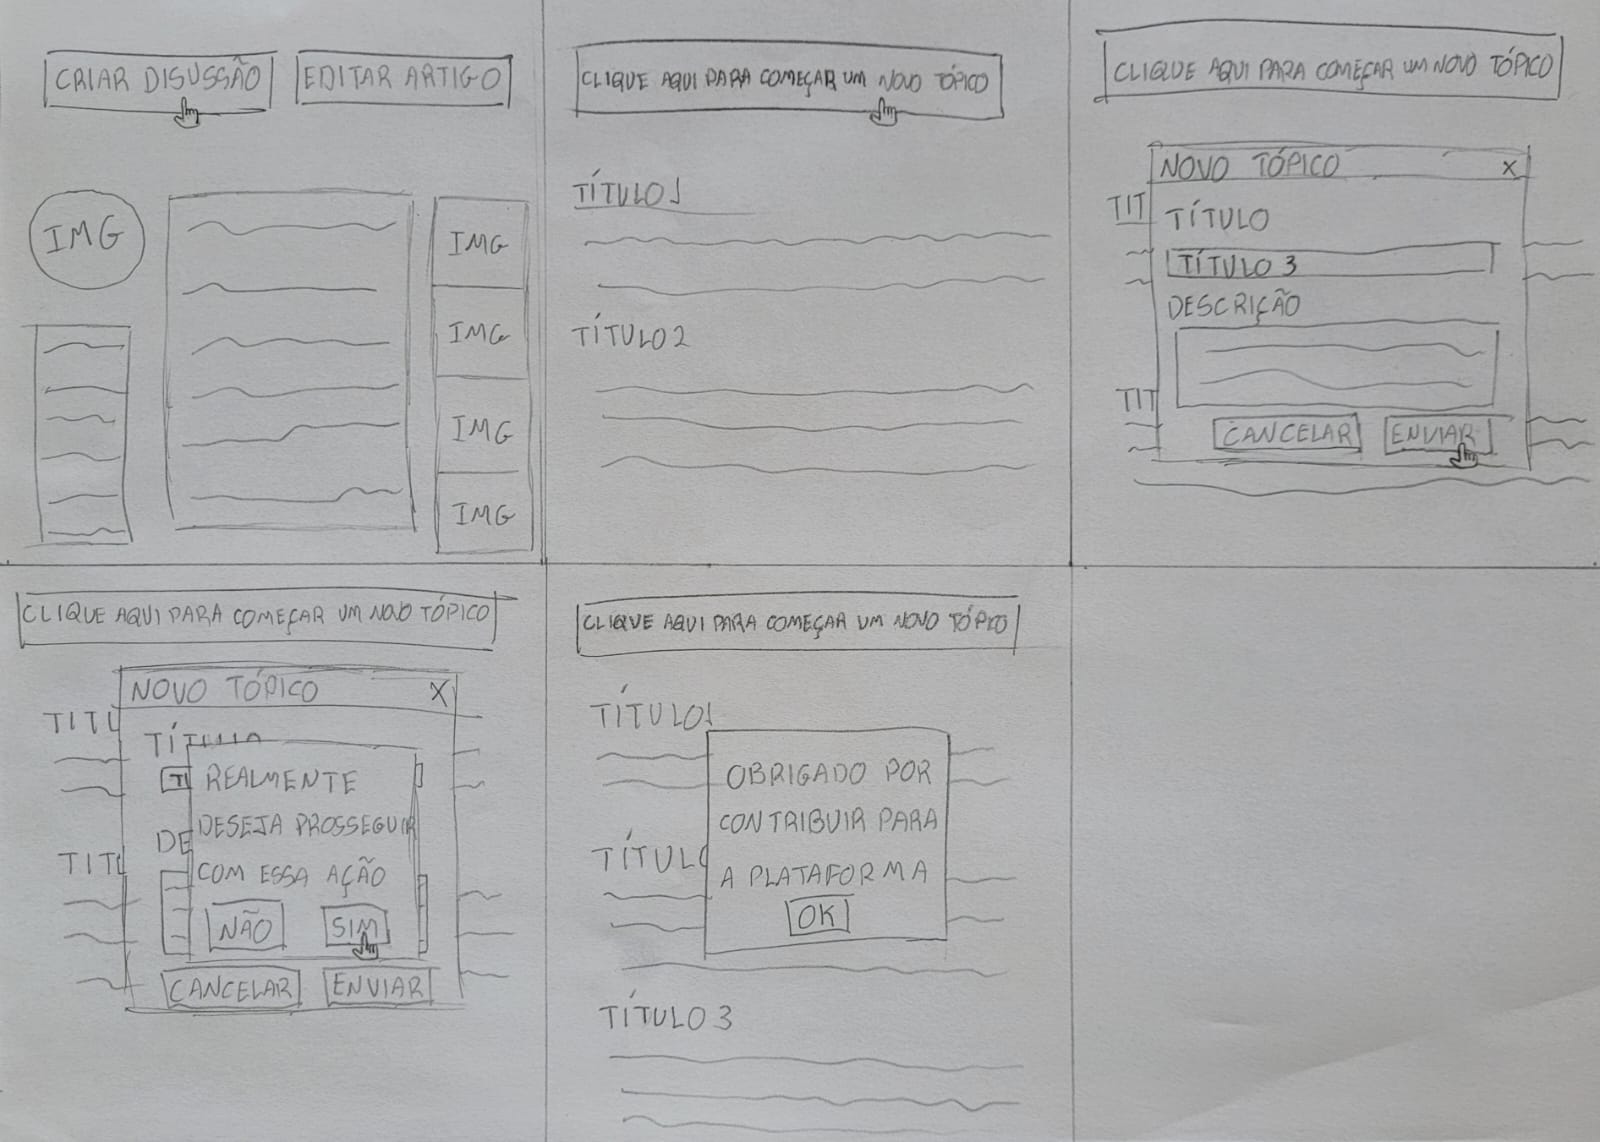 CRIAR DISUSSÃO
EDITAR ARTIGO
IMG
IMG
IMG
IMG
IMG
CLIQUE AQUI PARA COMEÇAR UM NOVO TÓPICO
TÍTULO 1
TÍTULO 2
CLIQUE AQUI PARA COMEÇAR UM NOVO TÓPICO
NOVO TÓPICO X
TIT
TÍTULO
TÍTULO 3
DESCRIÇÃO
TIT
CANCELAR ENVIAR
CLIQUE AQUI PARA COMEÇAR UM NOVO TÓPICO
NOVO TÓPICO X
TITU
TÍTULO
TI
REALMENTE
DESEJA PROSSEGUIR
DE
COM ESSA AÇÃO
TITU
NÃO SIM
CANCELAR ENVIAR
CLIQUE AQUI PARA COMEÇAR UM NOVO TÓPICO
TÍTULO1
OBRIGADO POR
CONTRIBUIR PARA
TÍTULO
A PLATAFORMA
OK
TÍTULO 3